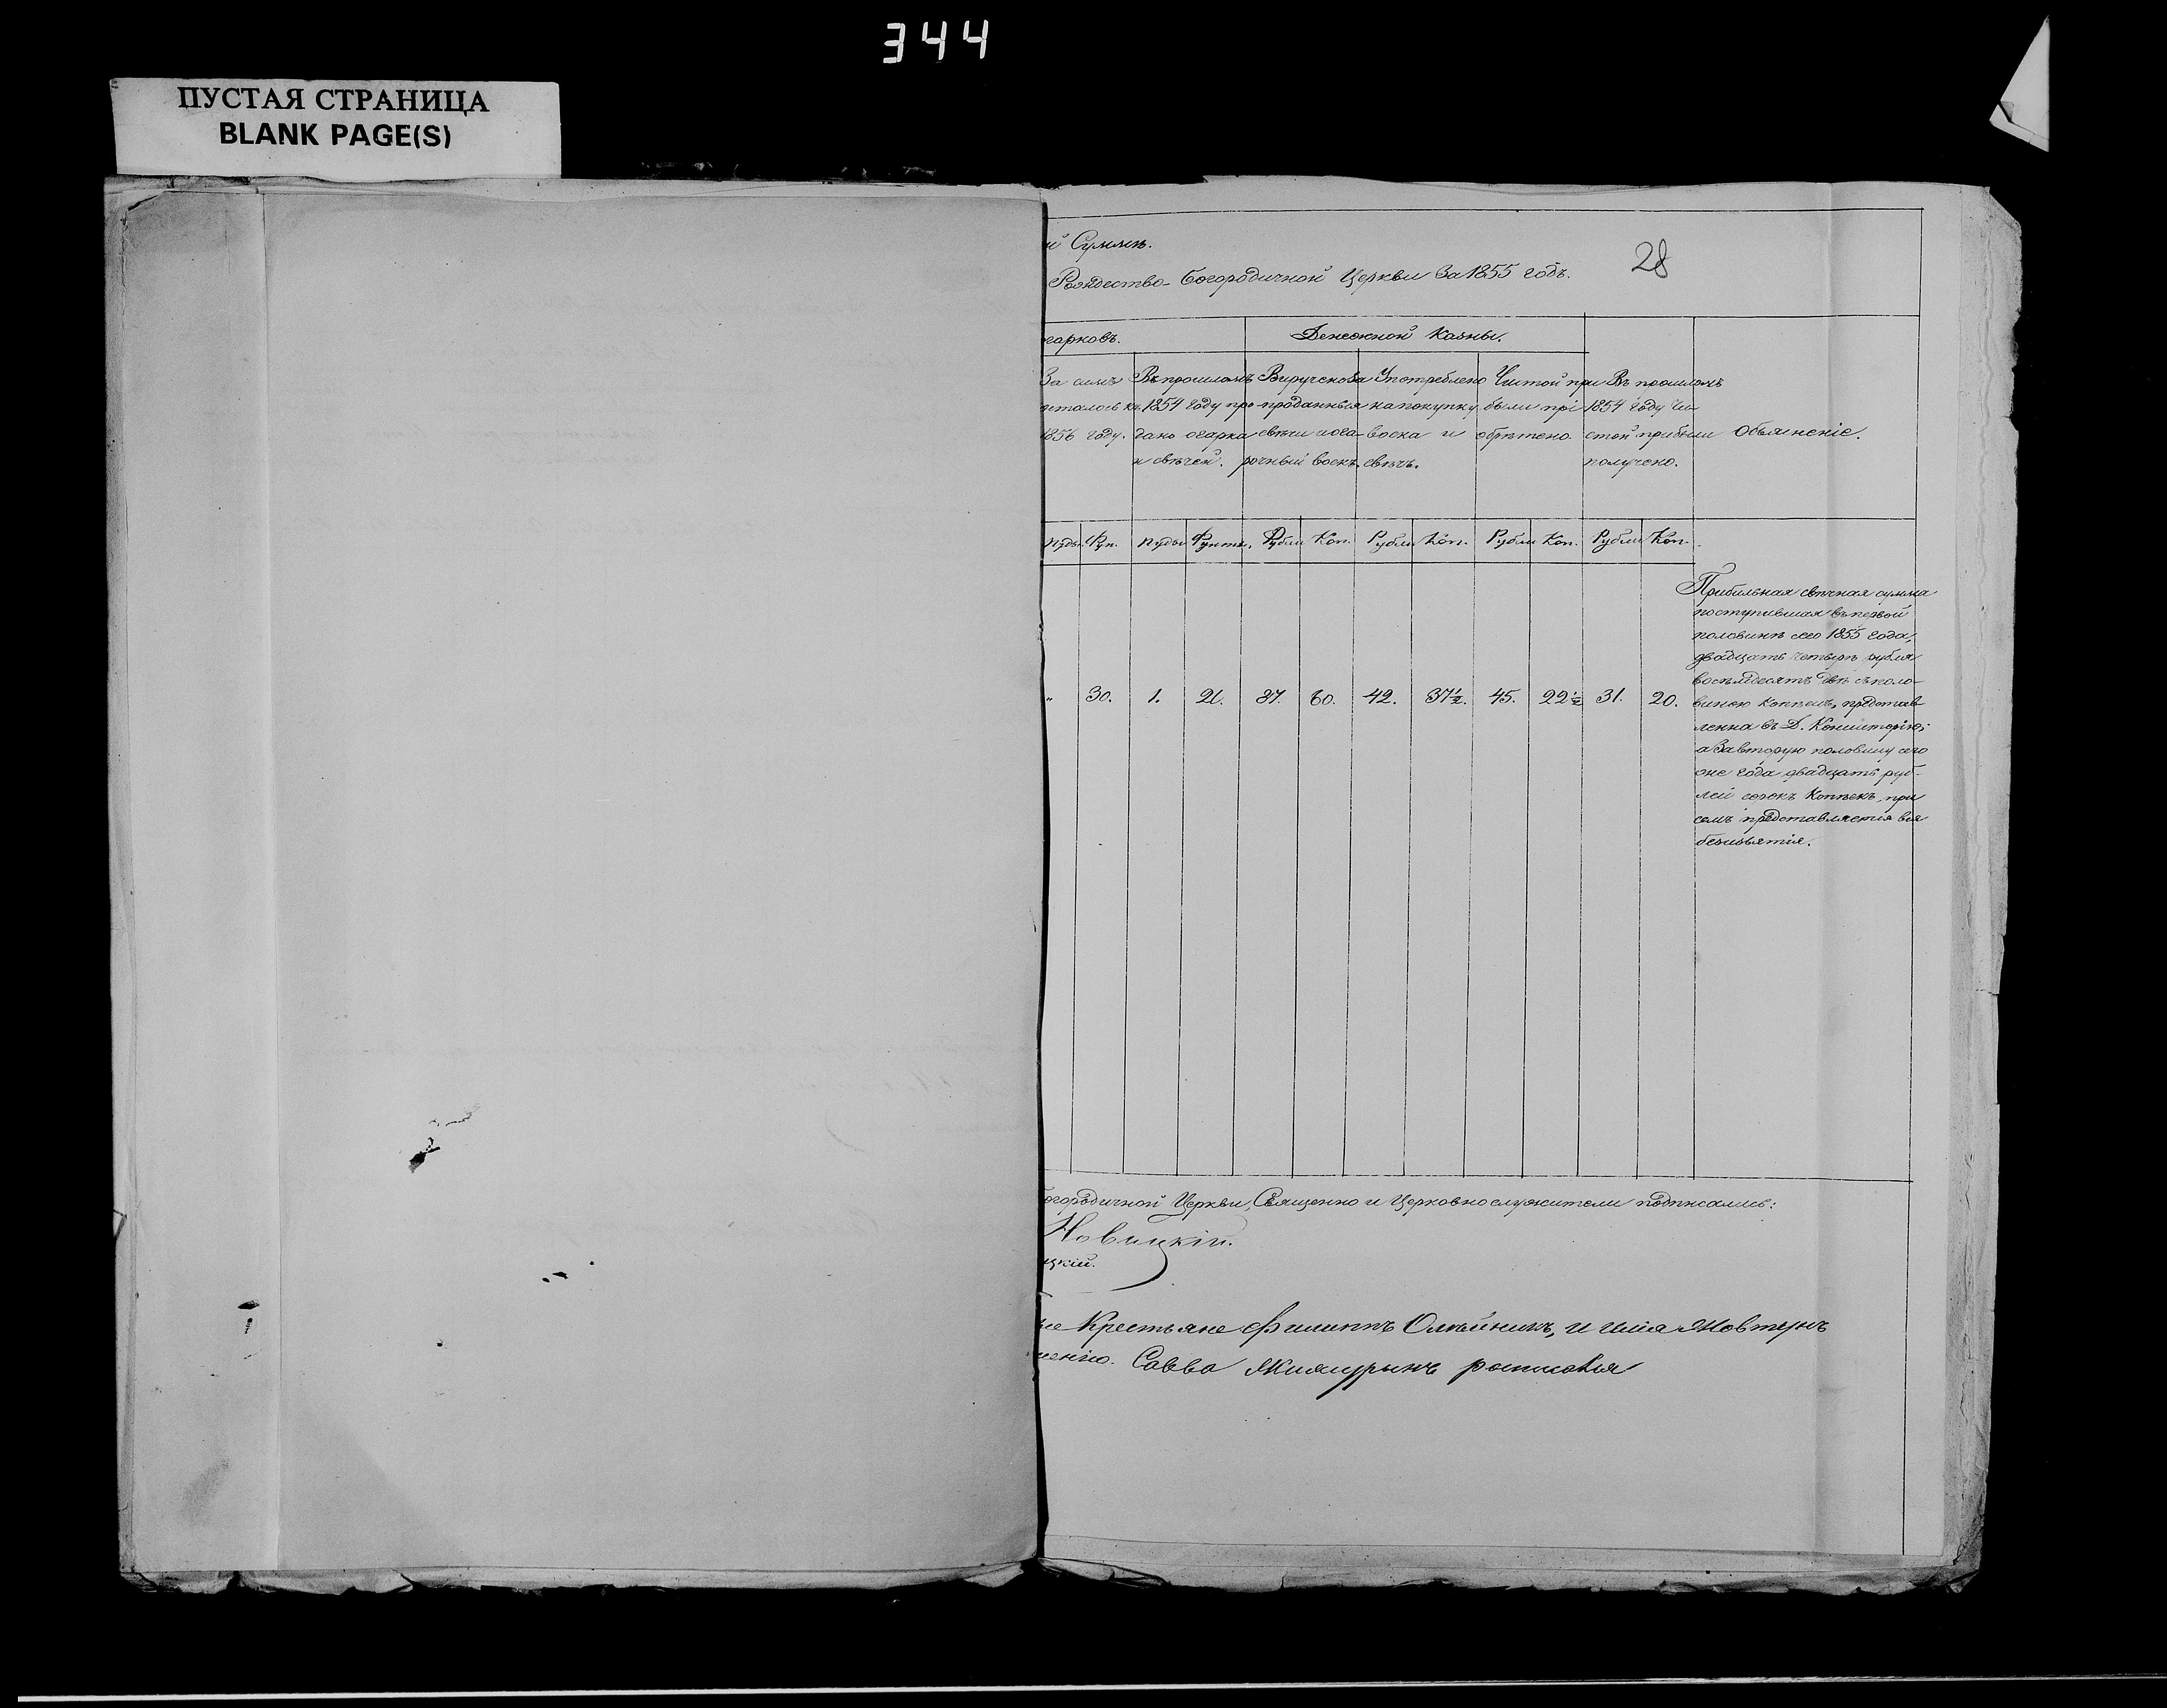 344
ПУСТАЯ СТРАНИЦА
BLANK PAGE(S)
й Суммѣ.
28
Рождество-Богородичной Церкви За 1855 годъ.
гарковъ.
Денежной Казны.
За симъ
осталось къ
1856 году.
Въ прошломъ
1854 году про
дано огарка
и свѣчей.
Выручено за
проданныя
свѣчи и ога-
рочный воскъ.
Употреблено
на покупку
воска и
свѣчъ.
Чистой при
были прі
обрѣтено
Въ прошломъ
1854 году чи
стой прибыли
получено.
Объясненіе.
Пуды Фун. Пуды Фунты. Рубли Коп. Рубли Коп. Рубли Коп. Рубли Коп.
" 30. 1. 21. 87. 60. 42. 37½. 45. 22½ 31. 20.
Прибыльная свѣчная сумма
поступившая въ первой
половинѣ сего 1855 года,
двадцать четыре рубля
восемьдесятъ двѣ съ поло-
виною копѣекъ, представ
ленна въ Д. Консисторію;
а за вторую половину сего
же года двадцать руб-
лей сорокъ копѣекъ, при
семъ представляется вся
безъизъятія.
огородичной Церкви, Священно и Церковнослужители подписались:
Новицкій.
цкій.
Крестьяне Филиппъ Олѣйникъ, и Илія Жовтунъ
Савва росписался